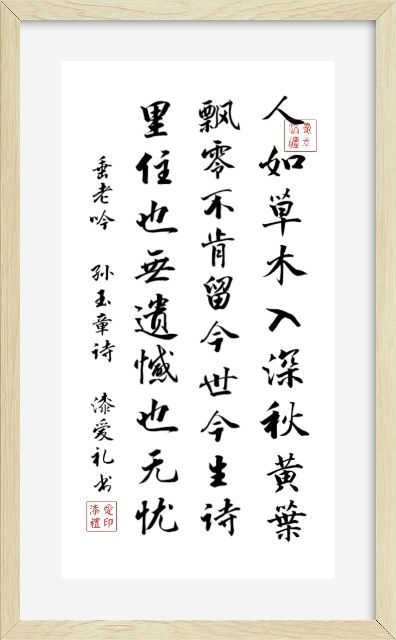 人如草木入深秋黃葉
飘零不肯留今世今生诗
里住也無遺憾也无忧
垂老吟 孙玉章诗 漆爱礼书
愛印
漆禮